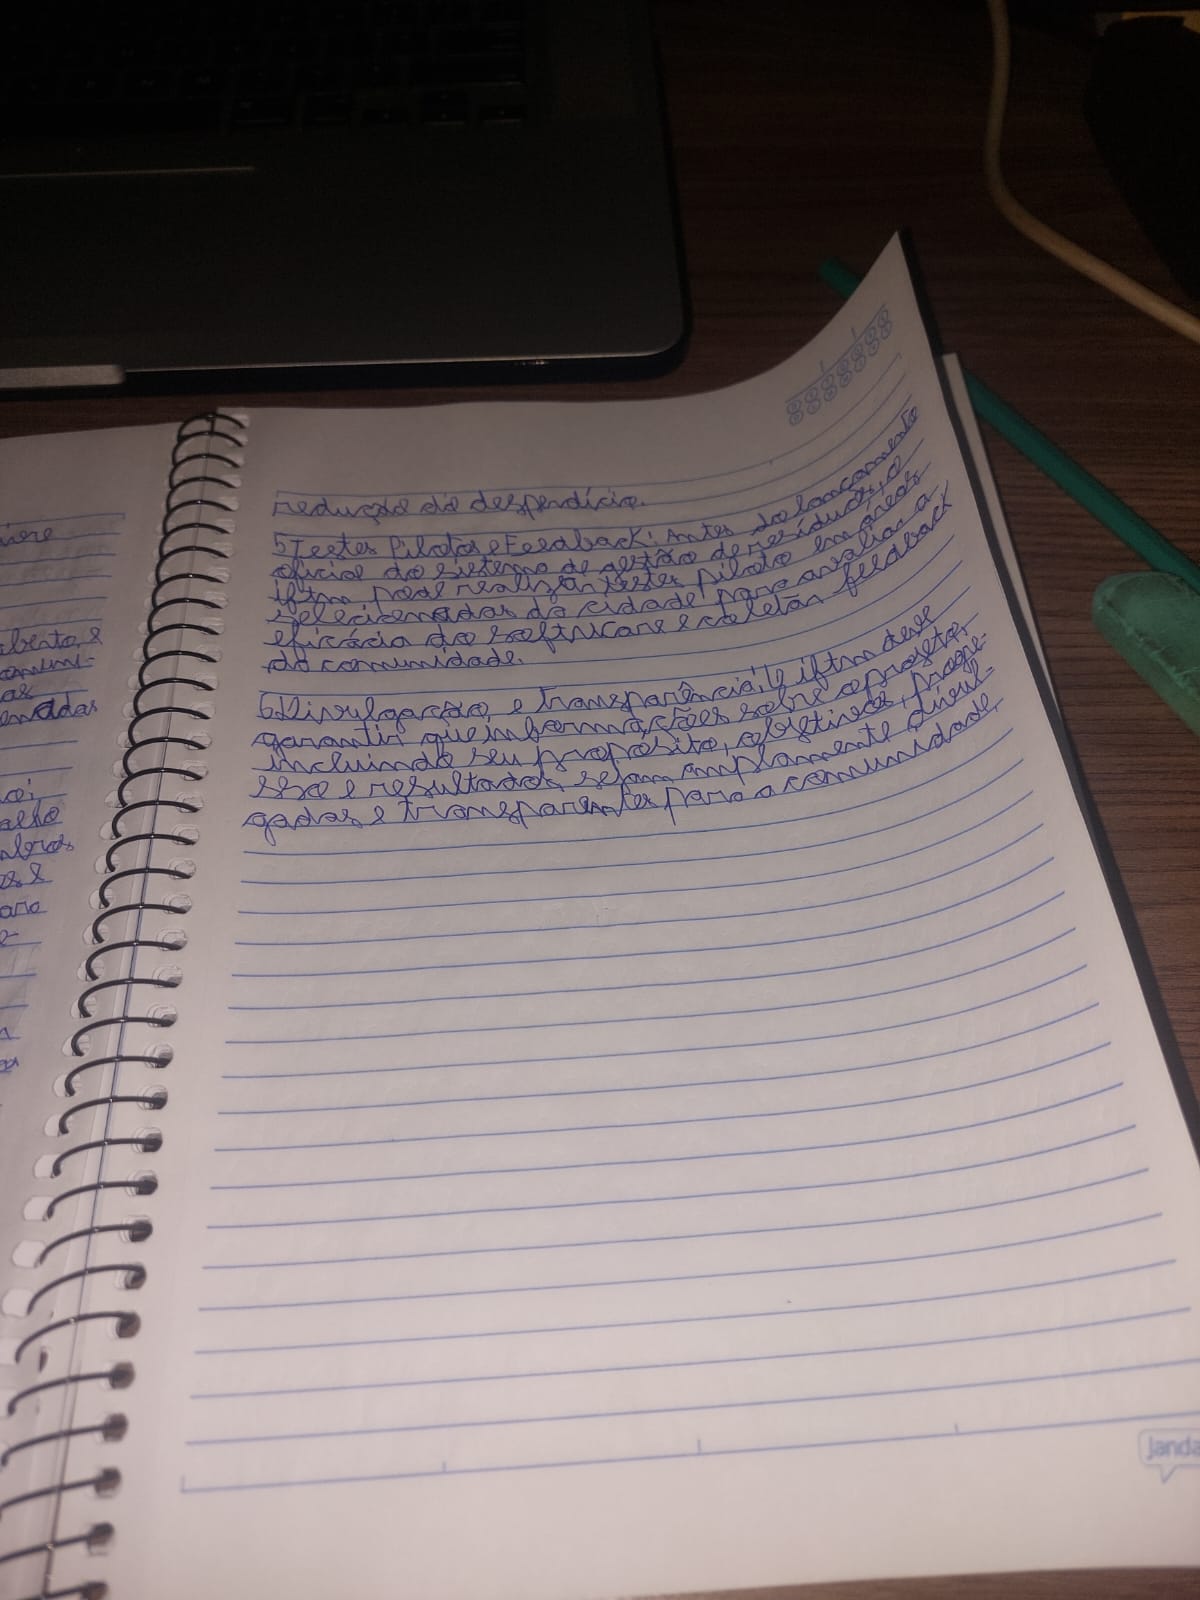 redução do desperdício.
5 Testes Pilotos e Feedback: Antes do lançamento
oficial do sistema de gestão de resíduos, o
iftm pode realizar testes piloto em áreas
selecionadas da cidade para avaliar a
eficácia do software e coletar feedback
da comunidade.
6 Divulgação e transparência: O iftm deve
garantir que informações sobre o projeto,
incluindo seu propósito, objetivos, progre-
sso e resultados, sejam amplamente divul-
gadas e transparentes para a comunidade.
nere
comuni-
as
alho
mbros
ano
Janda